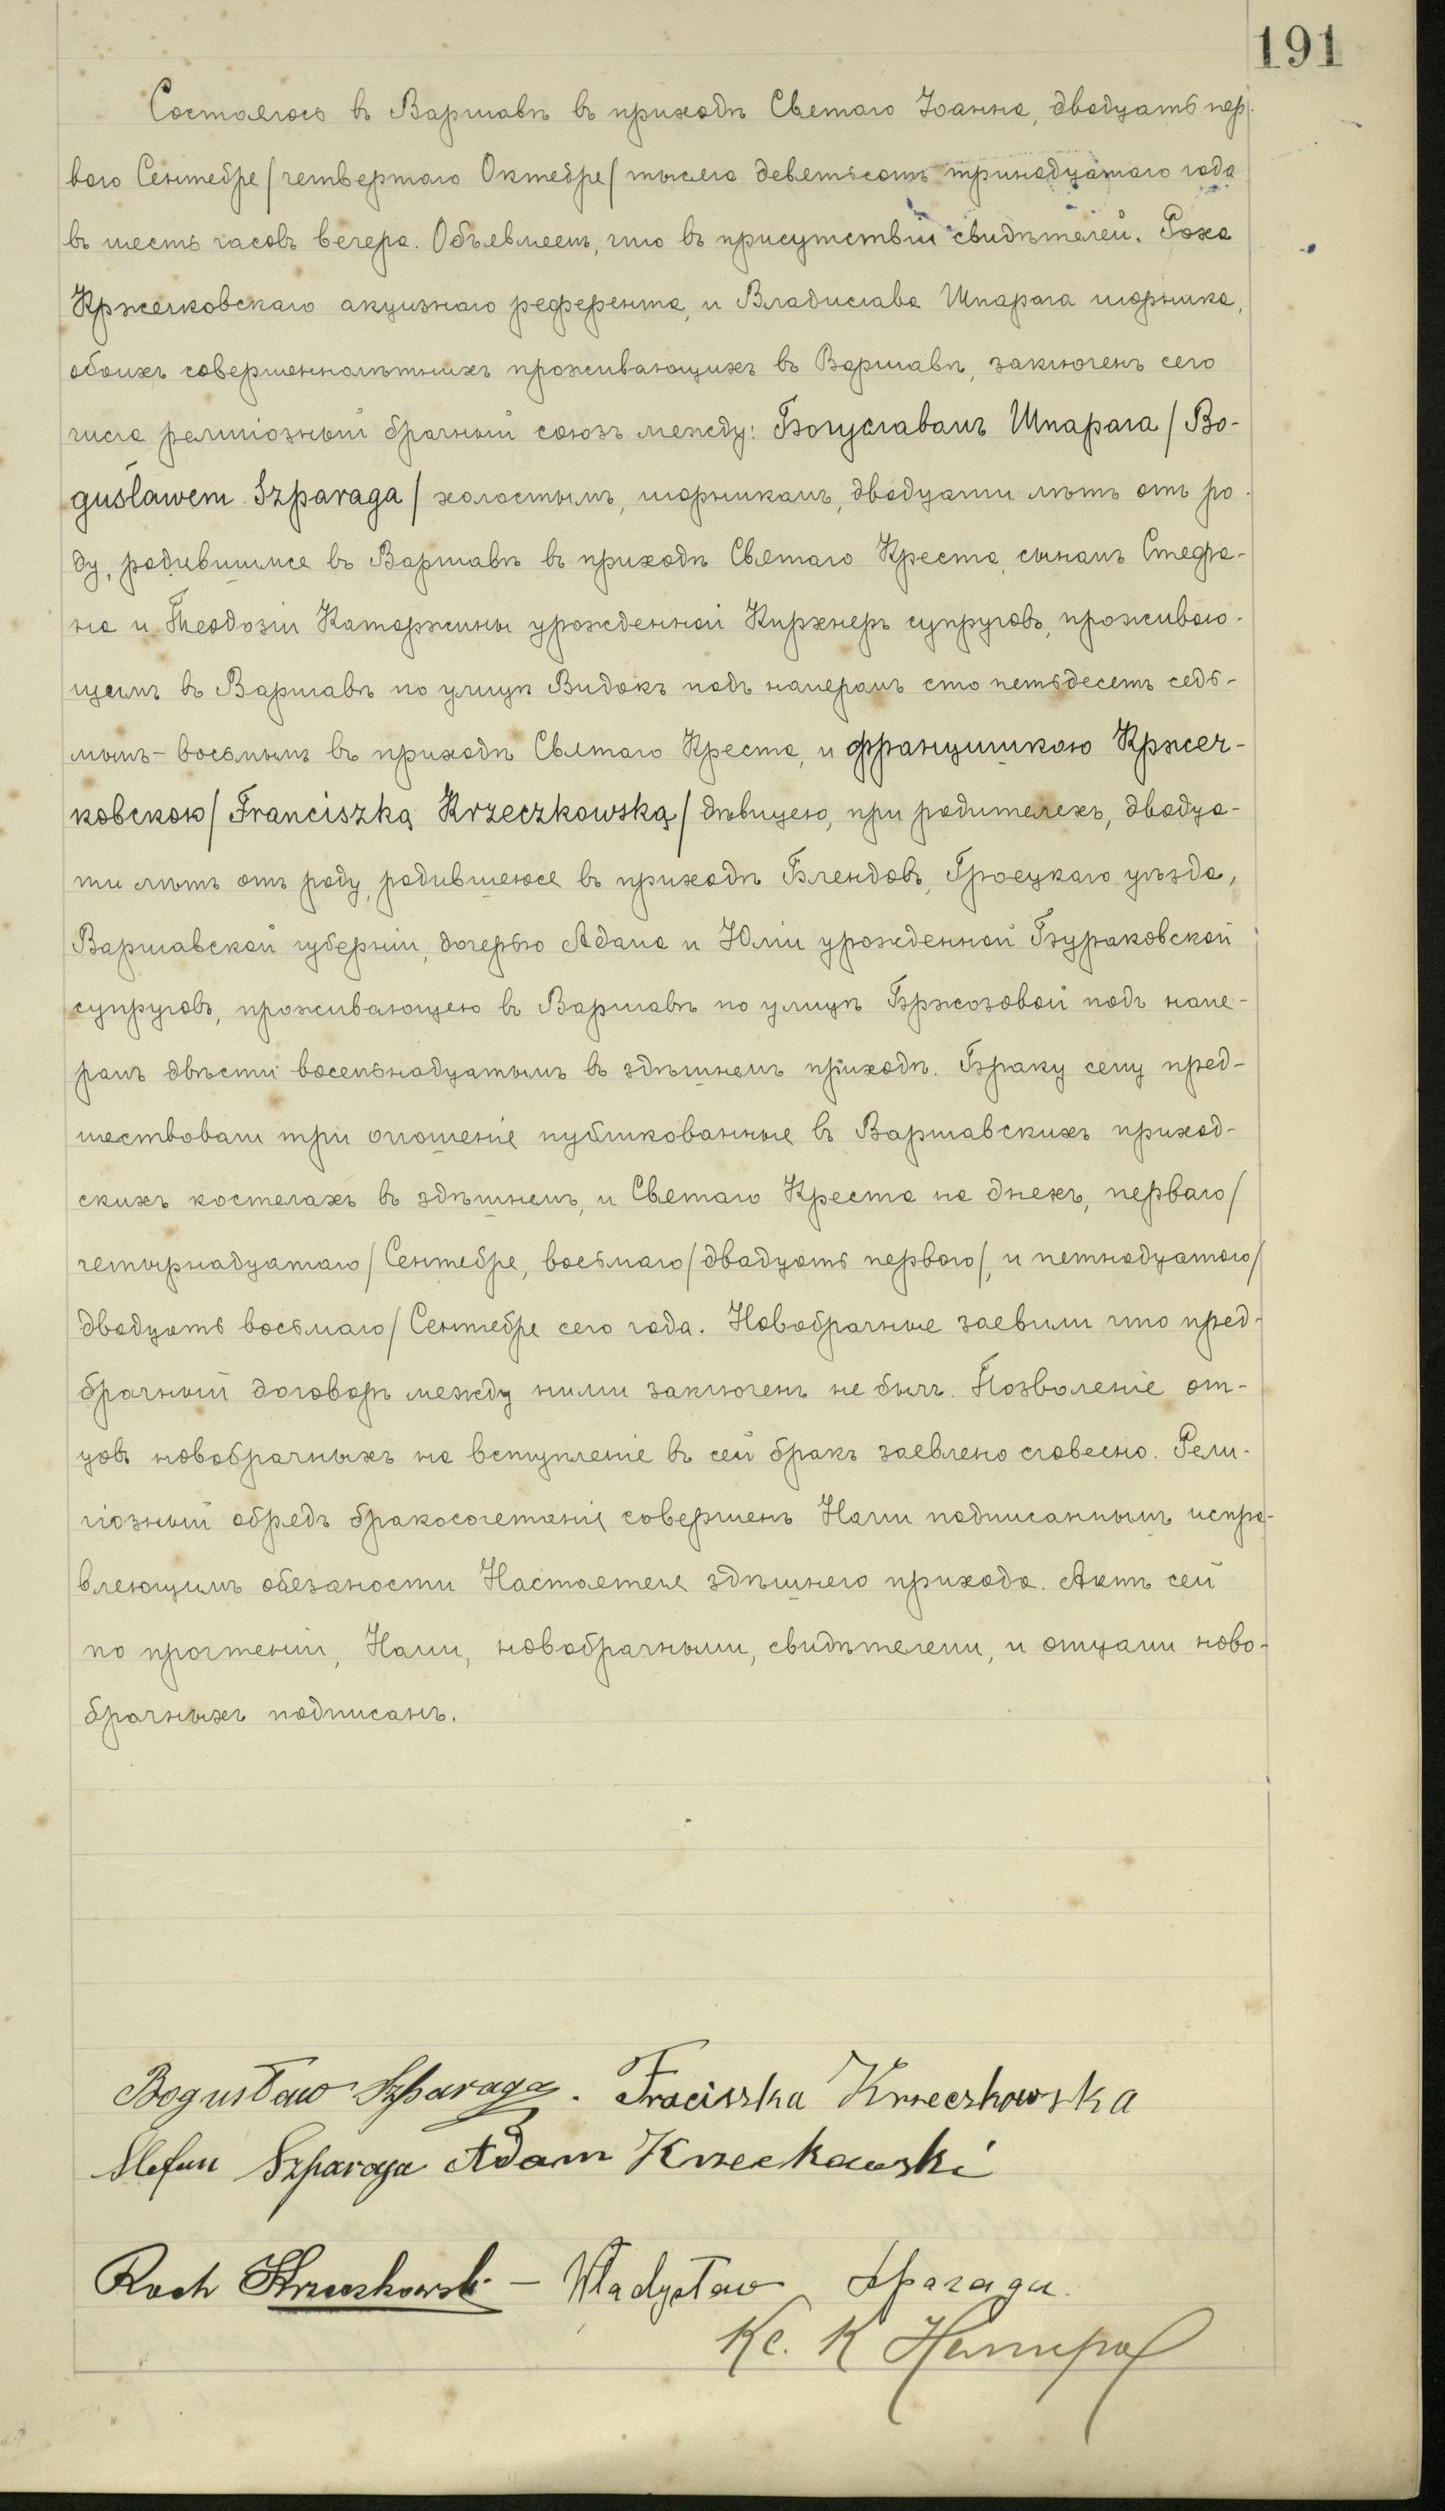 191
Состоялось въ Варшавѣ въ приходѣ Святаго Іоанна, двадцать пер-
ваго Сентября/четвертаго Октября/ тысяча девятьсотъ тринадцатаго года
въ шесть часовъ вечера. Объявляемъ, что въ присутствіи свидѣтелей, Роха
Кржечковскаго акцизнаго референта, и Владислава Шпарага шорника,
обоихъ совершеннолѣтнихъ проживающихъ въ Варшавѣ, заключенъ сего
числа религіозный брачный союзъ между: Богуславомъ Шпарага/Bo-
gusławem Szparaga/ холостымъ, шорникомъ, двадцати лѣтъ отъ ро-
ду, родившимся въ Варшавѣ въ приходѣ Святаго Креста, сыномъ Стефа-
на и Теодозіи Катаржины урожденной Кирхнеръ супруговъ, проживаю-
щимъ въ Варшавѣ по улицѣ Видокъ подъ намеромъ сто пятьдесятъ седь-
мымъ-восьмымъ въ приходѣ Святаго Креста, и Францишкою Кржеч-
ковскою/Franciszką Krzeczkowską/ дѣвицею, при родителяхъ, двадца-
ти лѣтъ отъ роду, родившеюся въ приходѣ Блендовъ, Гроецкаго уѣзда,
Варшавской губерніи, дочерью Адама и Юліи урожденной Бураковской
супруговъ, проживающею въ Варшавѣ по улицѣ Бржозовой подъ наме-
ромъ двѣсти восемьнадцатымъ въ здѣшнемъ приходѣ. Браку сему пред-
шествовали три оглошенія публикованные въ Варшавскихъ приход-
скихъ костелахъ въ здѣшнемъ, и Святаго Креста на дняхъ, перваго/
четырнадцатаго/ Сентября, восьмаго/двадцать перваго/, и пятнадцатаго/
двадцать восьмаго/ Сентября сего года. Новобрачные заявили что пред-
брачный договоръ между ними заключенъ не былъ. Позволеніе от-
цовъ новобрачныхъ на вступленіе въ сей бракъ заявлено словесно. Рели-
гіозный обрядъ бракосочетанія совершенъ Нами подписаннымъ испра-
вляющимъ обязаности Настоятеля здѣшнего прихода. Актъ сей
по прочтеніи, Нами, новобрачными, свидѣтелями, и отцами ново-
брачныхъ подписанъ.
Bogusław Szparaga. Fraciszka Krzeczkowska
Stefan Szparaga Adam Krzeckowski
Roch Krzeczkowski – Władysław Sparaga
Кс. К